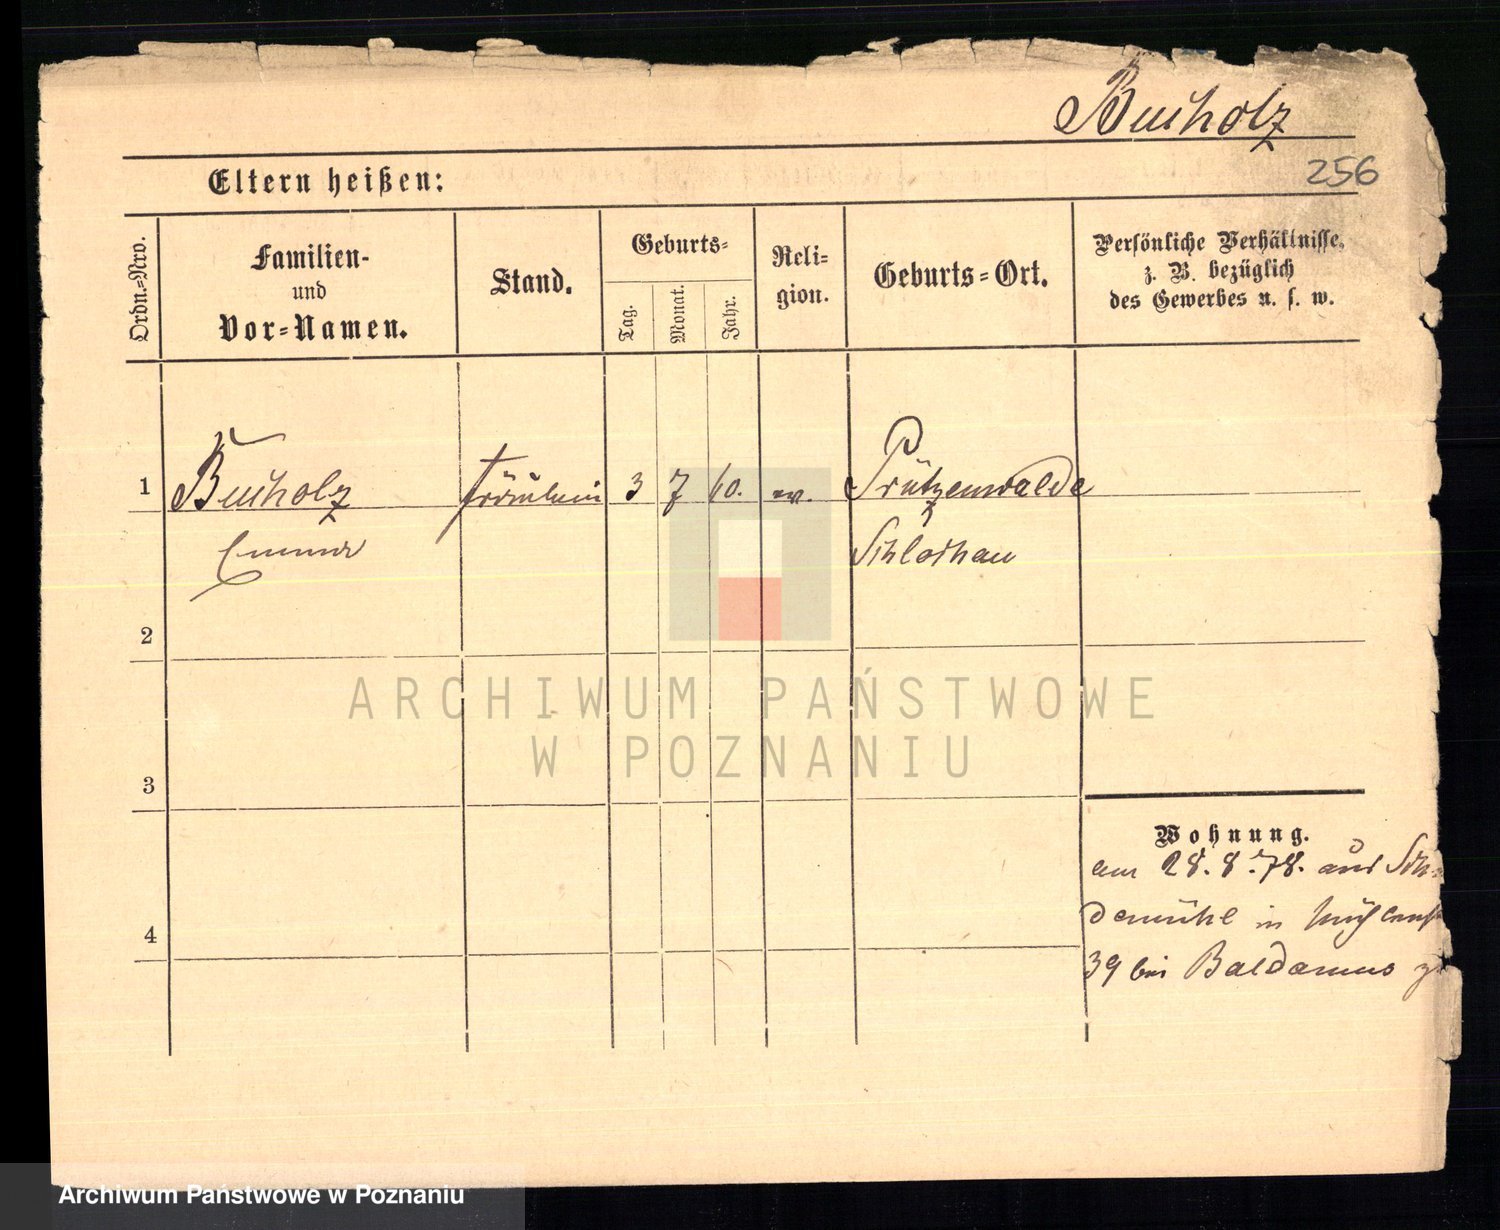 Buchholz
256
Eltern heißen:
Ordn.-Nro.
Familien-
und
Vor-Namen.
Stand.
Geburts-
Tag.
Monat.
Jahr.
Reli-
gion.
Geburts-Ort.
Persönliche Verhältnisse,
z. B. bezüglich
des Gewerbes u. s. w.
1 Buchholz Fräulein 3 7 60. ev. Prützenwalde
Emma Schlochau
2
3
4
Wohnung.
am 28. 8. 78. aus
demühl in
39 bei Baldamus
ARCHIWUM PAŃSTWOWE
W POZNANIU
Archiwum Państwowe w Poznaniu